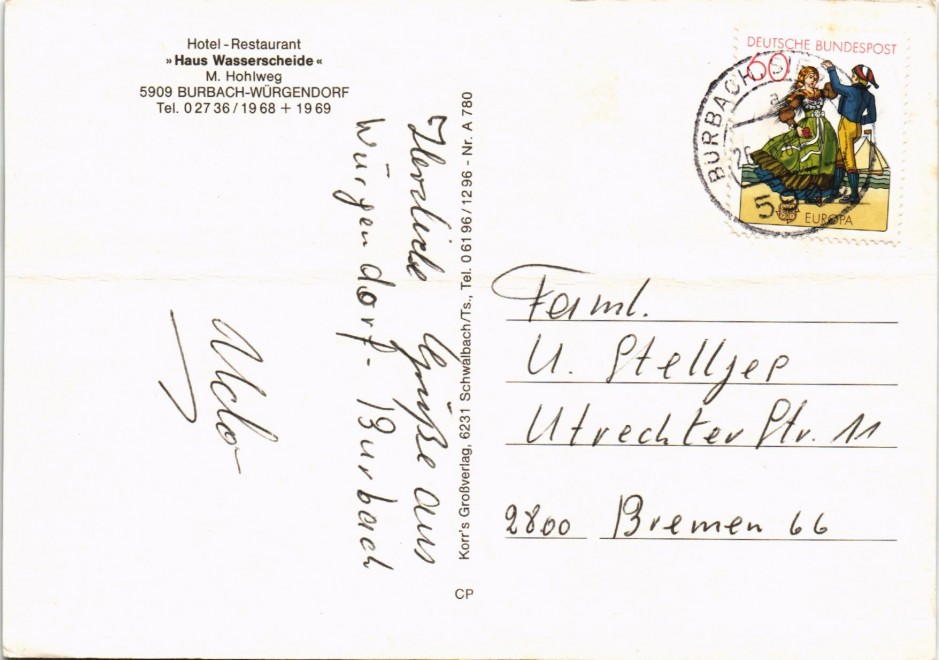 Hotel-Restaurant
»Haus Wasserscheide«
M. Hohlweg
5909 BURBACH-WÜRGENDORF
Tel. 02736/1968 + 1969
DEUTSCHE BUNDESPOST
60
EUROPA
BURBACH
5
Herzliche Grüße aus
Würgendorf - Burbach
Udo
Korr's Großverlag, 6231 Schwalbach/Ts., Tel. 06196/1296 - Nr. A 780
CP
Faml.
U. Stelljes
Utrechter Str. 11
2800 Bremen 66